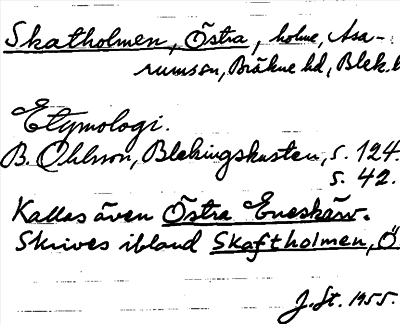 Skatholmen, Östra, holme, Asa-
rumsön, Bräkne hd, Blek.
Etymologi.
B. Ohlsson, Blekingskusten, s. 124.
s. 42.
Kallas även Östra Eneskär.
Skrives ibland Skaftholmen, Ö
J. St. 1955.